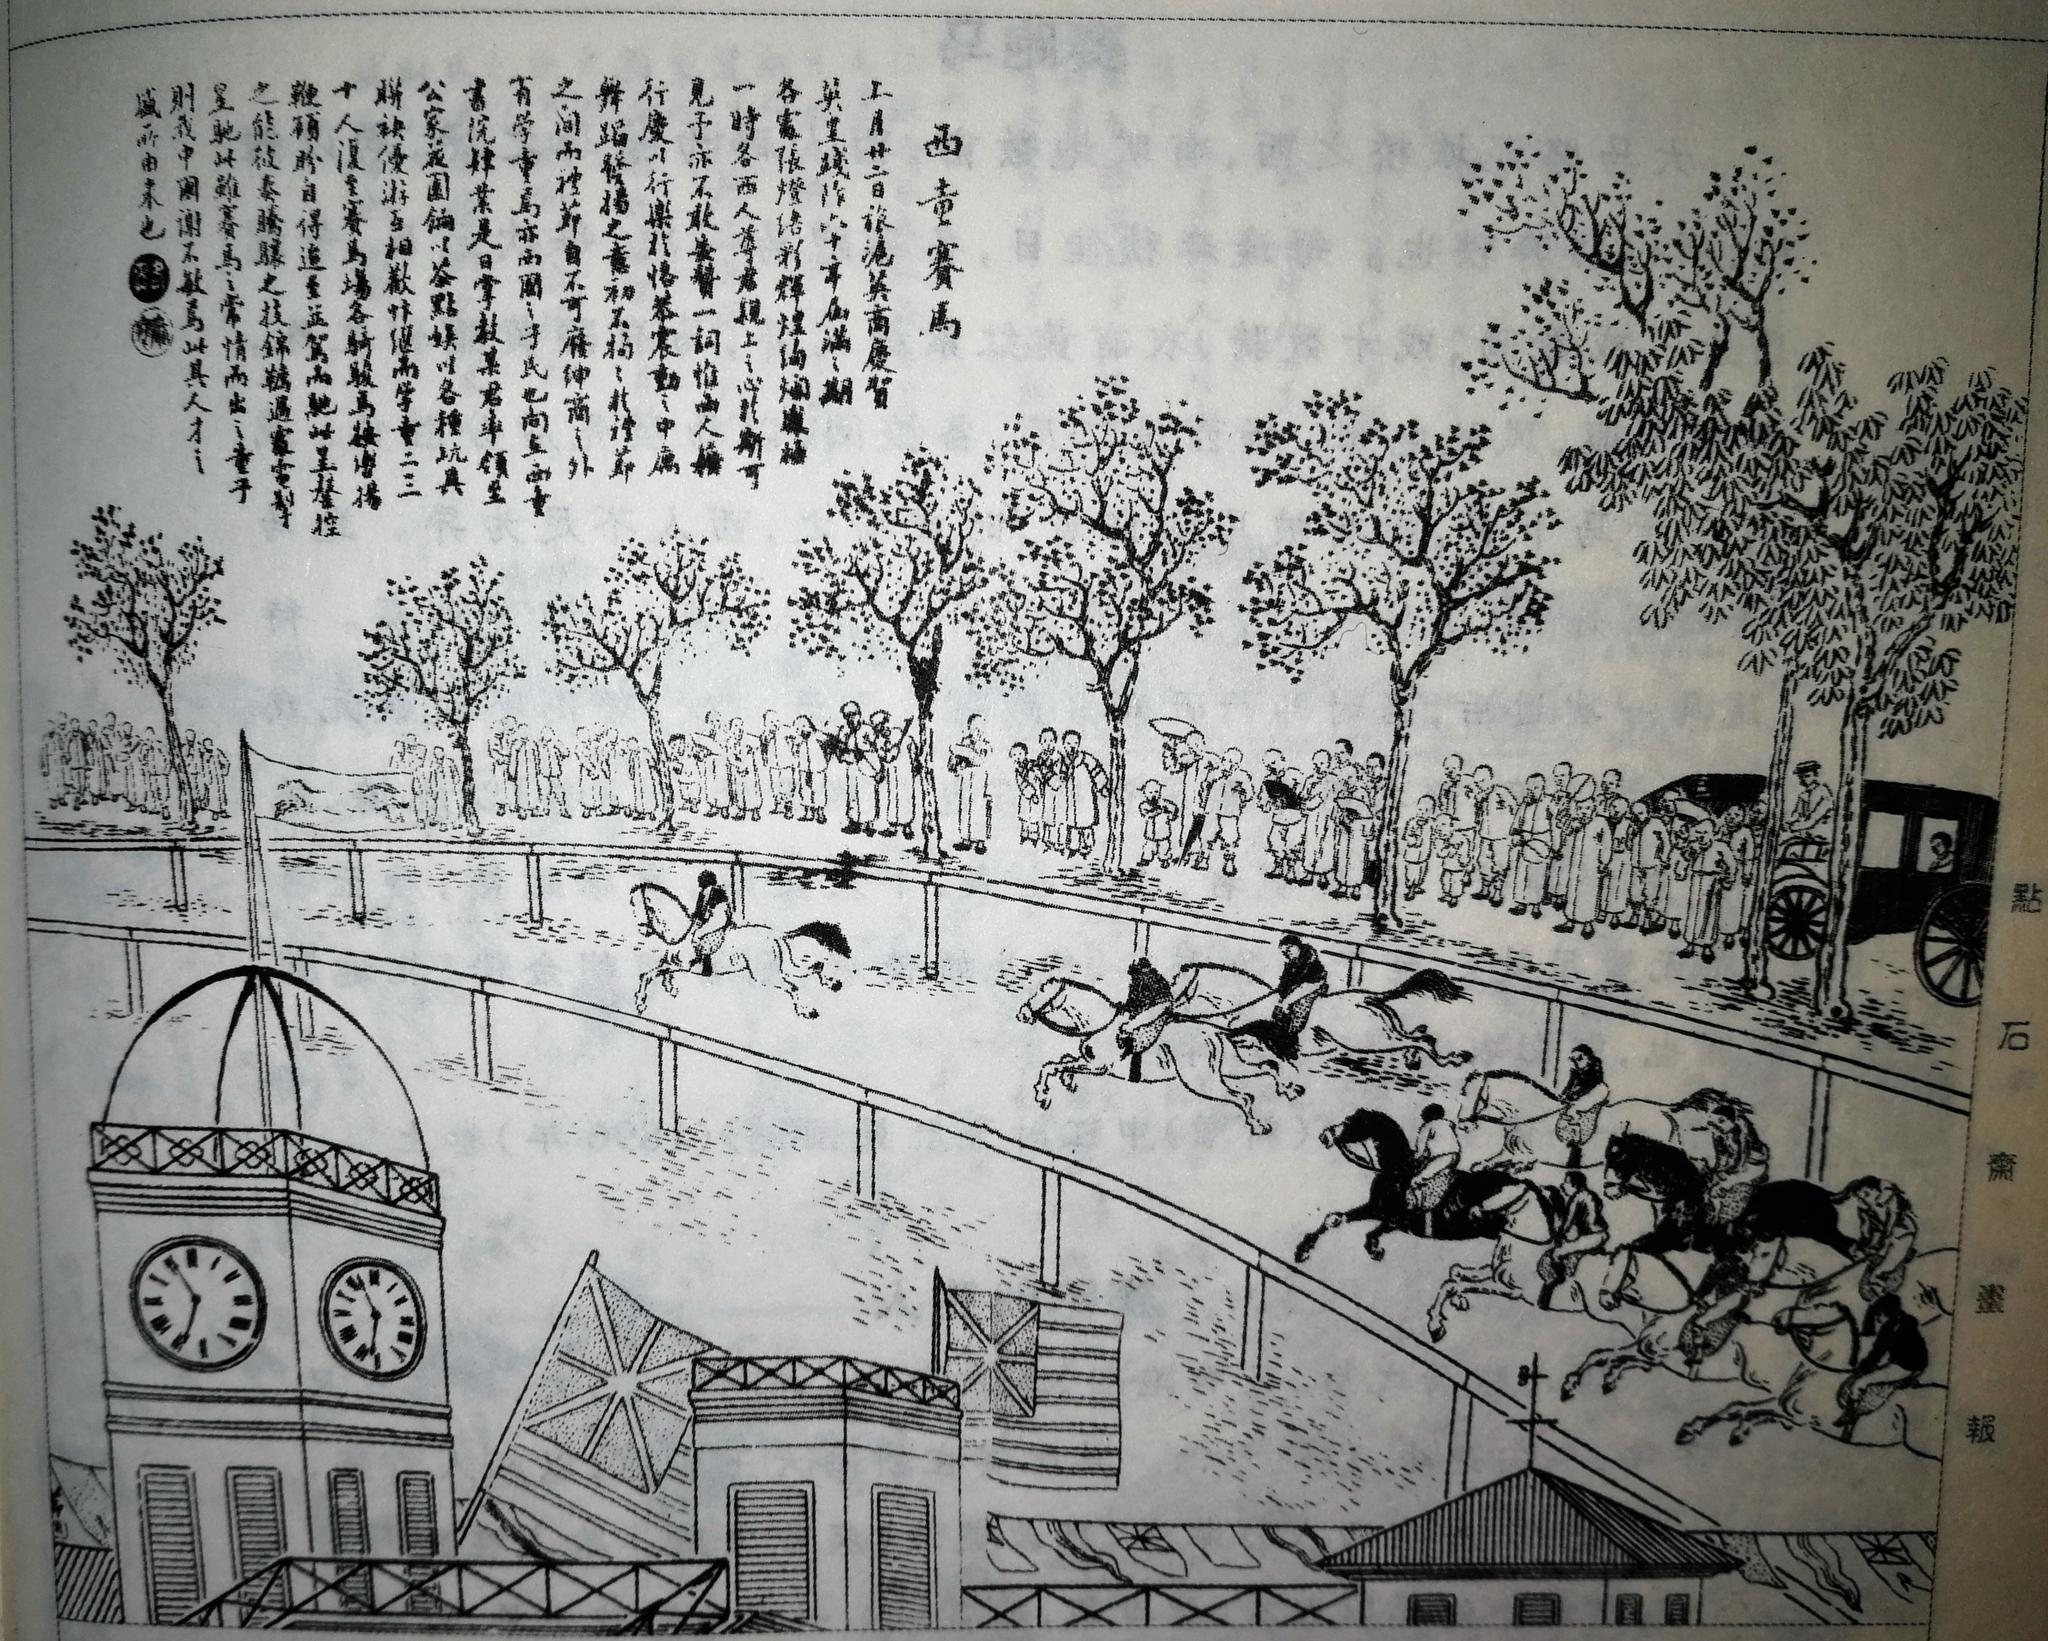 西童賽馬
上月廿二日旅滬英商慶賀
英皇踐阼六十年屆滿之期
各處張燈結彩輝煌絢爛
一時各西人尊君親上之心於斯可
見予亦不敢無贊一詞惟西人藉
行慶以行樂於恪恭震動之中寓
舞蹈發揚之意初不拘拘於禮節
之間而禮節自不可廢紳商之外
有學童焉亦西國之子民也向在西童
書院肄業是日掌教某君率領至
公家花園餉以茶點娛以各種玩具
聯袂優游互相歡忭繼而學童二三
十人復至賽馬場各騎駿馬按轡揚
鞭顧盼自得追至並駕而馳此呈罄控
之能彼奏騰驤之技錦韉過處電掣
星馳此雖賽馬之常情而出之童子
則我中國謝不敏焉此其人才之
盛所由來也
點石齋畫報